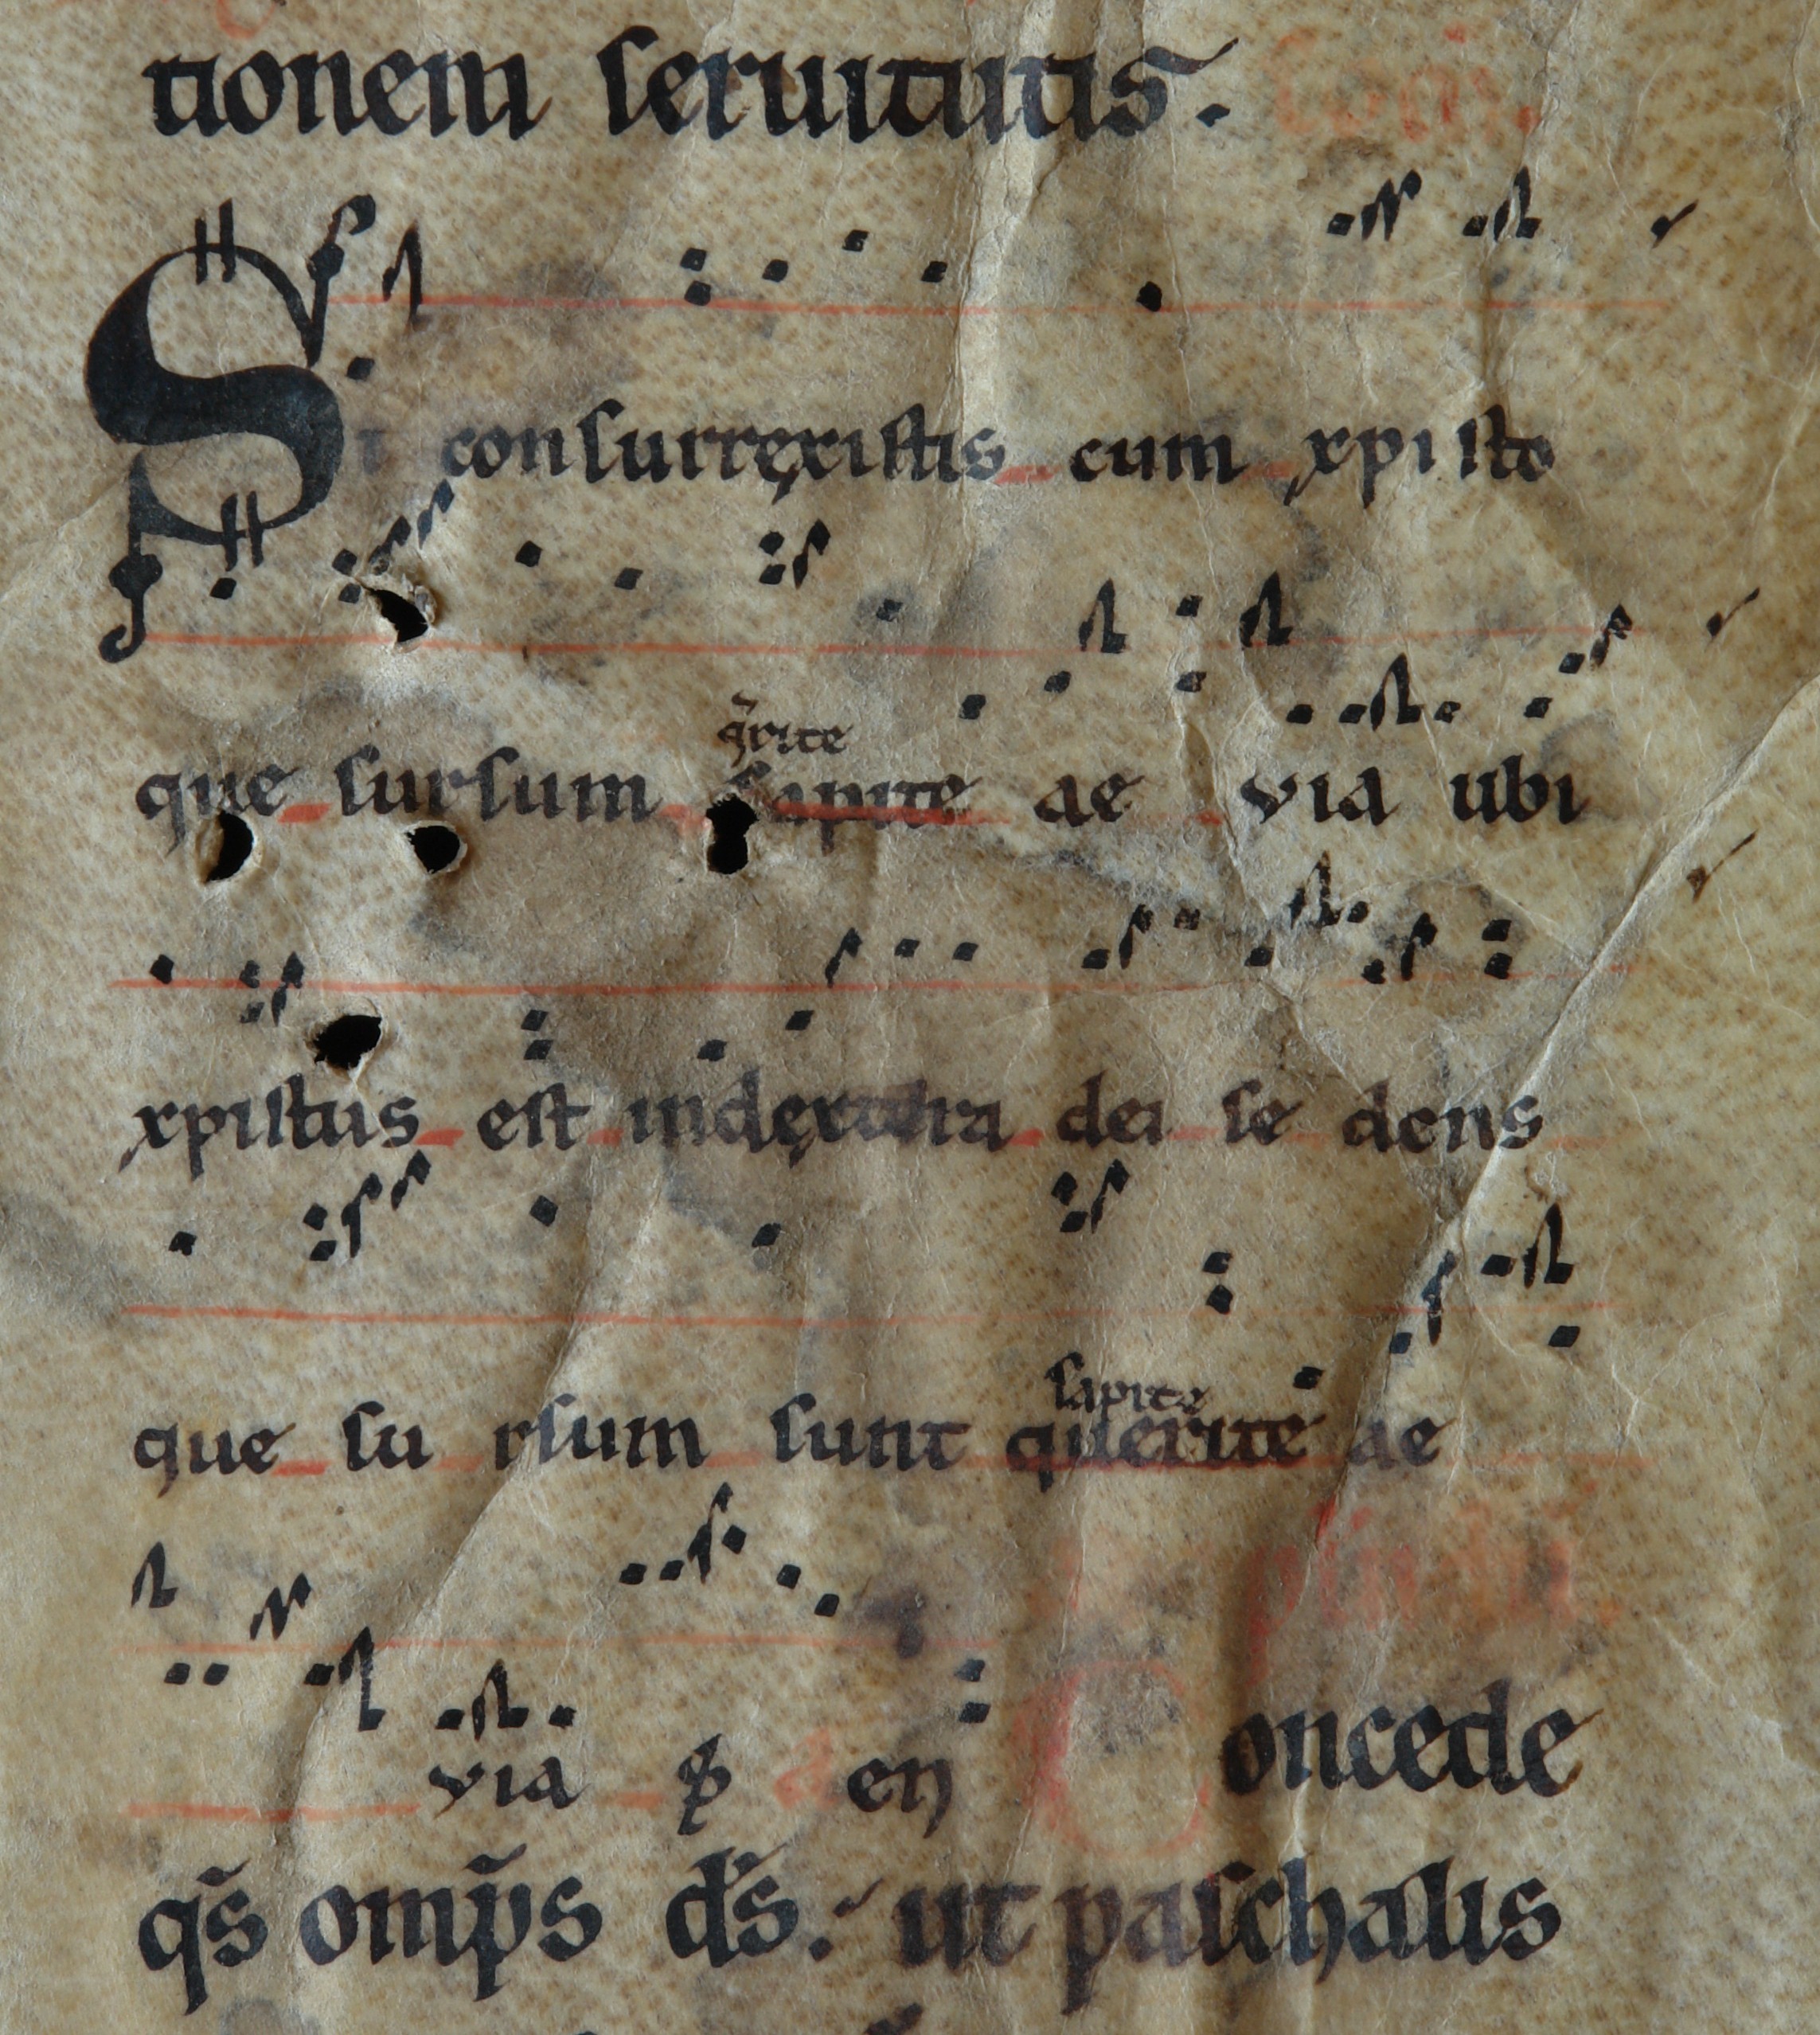 tionem seruitutis.
Si consurrexistis cum xpisto
qrite
que sursum sapite ae via ubi
xpistus est indextera dei se dens
sapite
que su rsum sunt querite ae
via en Concede
q̄s om̄ps d̄s. ut paschalis